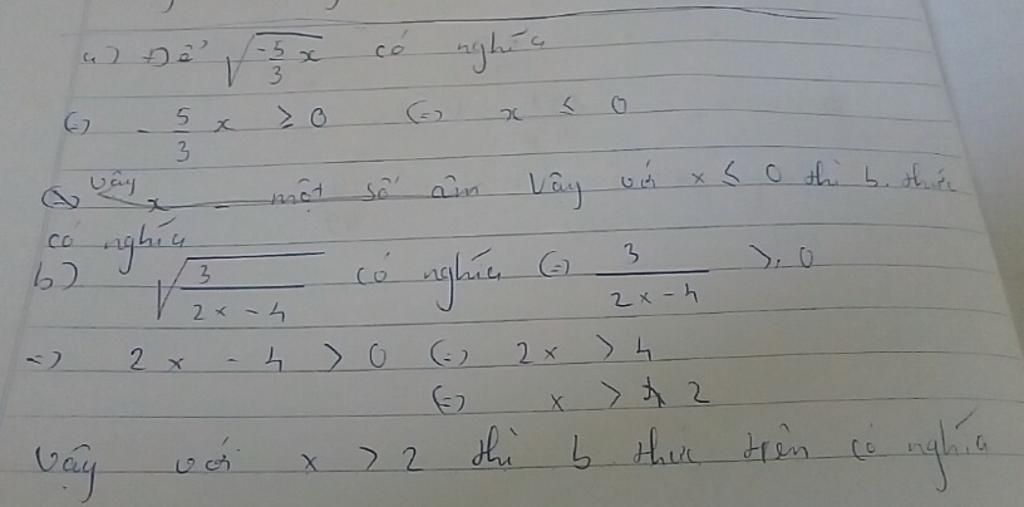 a) Để √(-5/3 x) có nghĩa
(=) - 5/3 x ≥ 0 (=) x ≤ 0
Vậy x - một số âm Vậy với x ≤ 0 thì b. thức
có nghĩa
b) √(3/(2x - 4)) có nghĩa (=) 3/(2x - 4) ≥ 0
=) 2x - 4 > 0 (=) 2x > 4
(=) x > 2
Vậy với x > 2 thì b thức trên có nghĩa